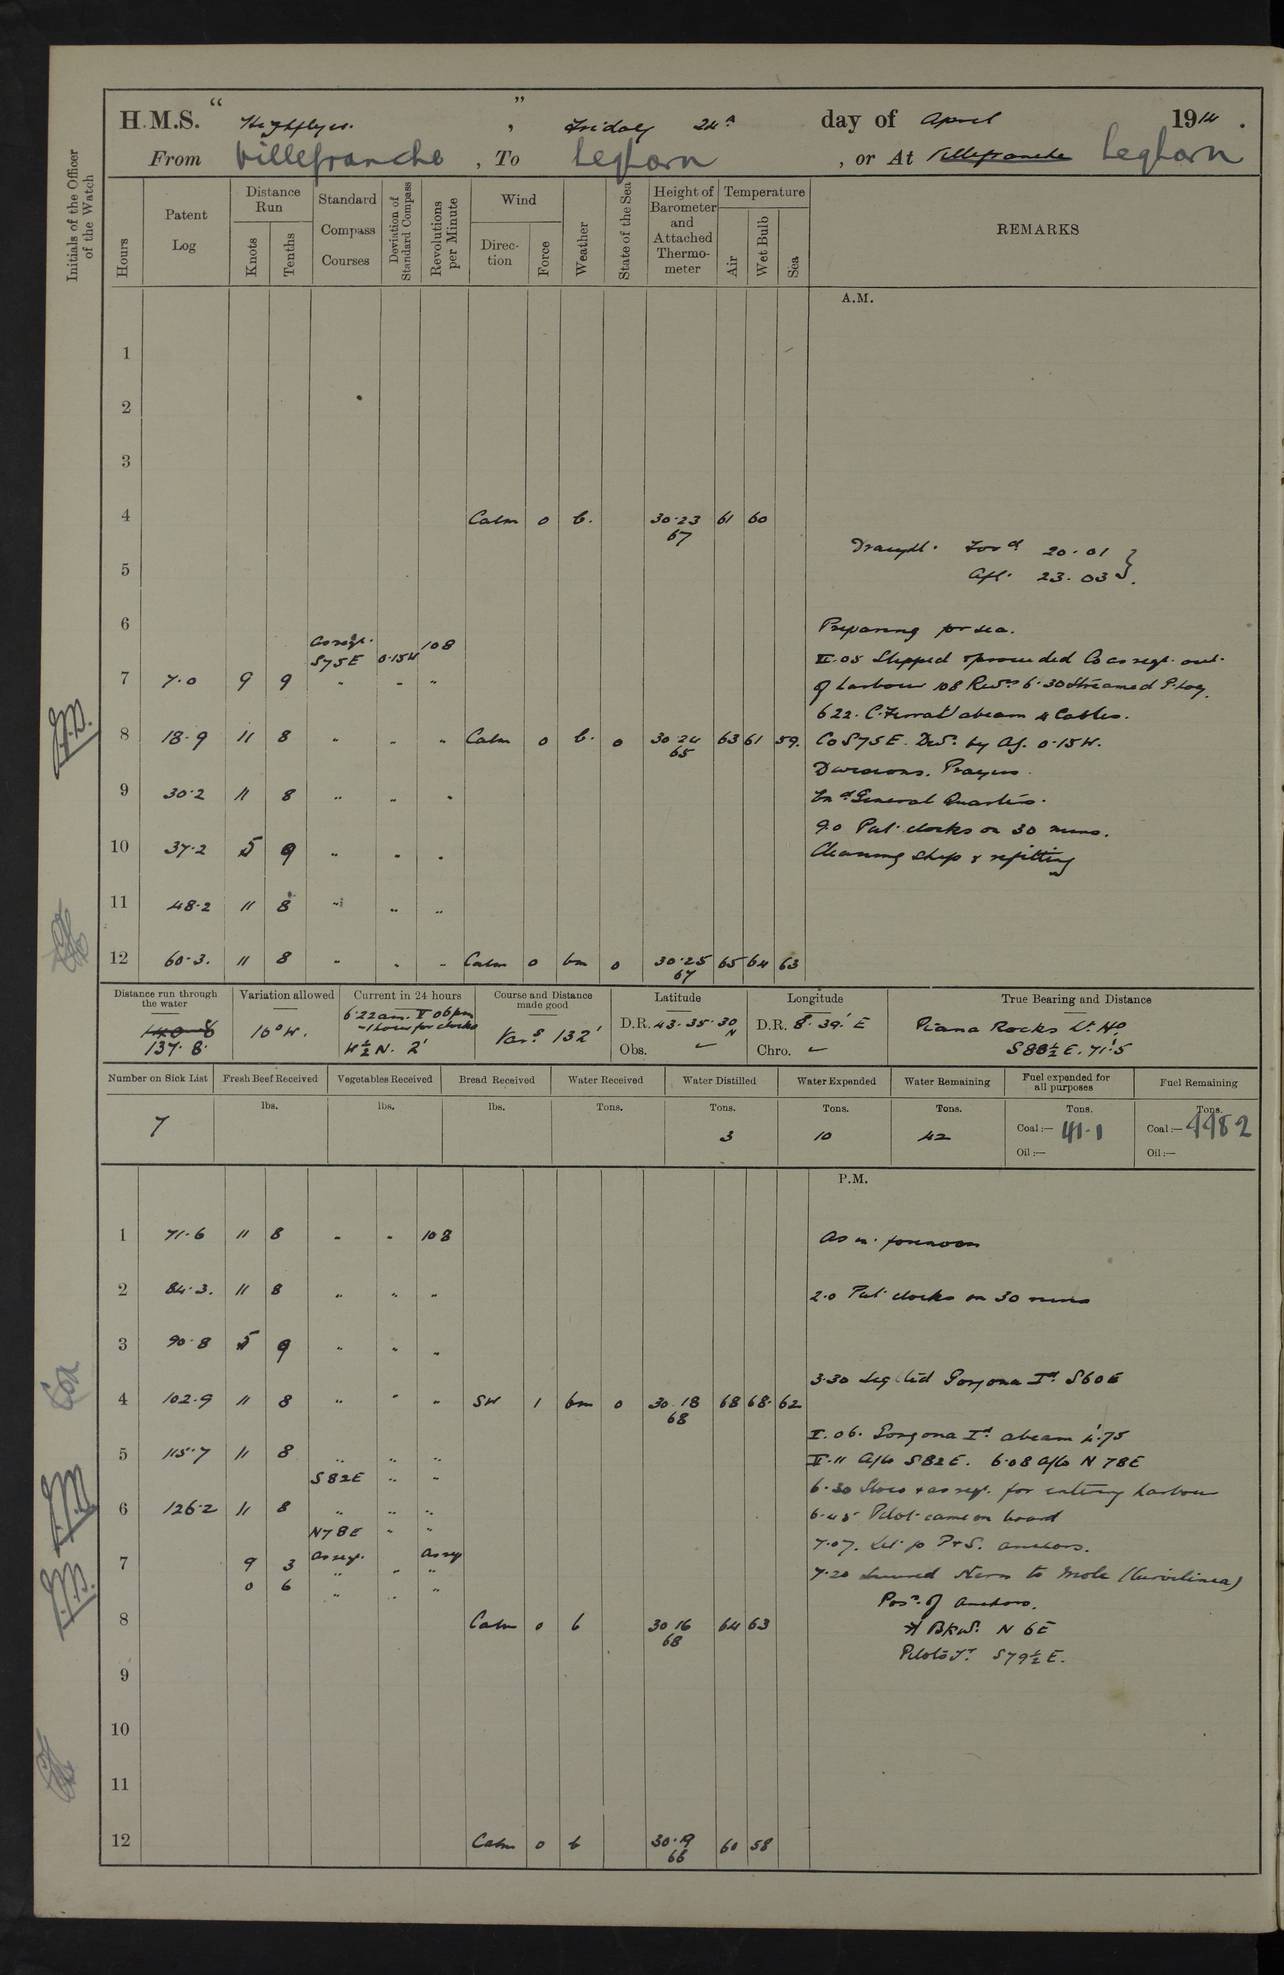 H.M.S. " Highflyer. ", Friday 24th day of April 1914.
From Villefranche, To Leghorn, or At Villefranche Leghorn
Initials of the Officer of the Watch
Hours
Patent Log
Distance Run
Knots
Tenths
Standard Compass Courses
Deviation of Standard Compass
Revolutions per Minute
Wind
Direction
Force
Weather
State of the Sea
Height of Barometer and Attached Thermometer
Temperature
Air
Wet Bulb
Sea
REMARKS
A.M.
1
2
3
4 Calm 0 b. 30.23 61 60
67
Draught. Ford 20.01
5
Aft. 23.03
6 Preparing for sea.
As reqte. 108
S75E 0.15W
.05 Slipped & proceeded Co as reqte. out
7 7.0 9 9 " " " of harbour 108 Revs 6.30 Streamed P. Log.
6.22. C. Ferrat abeam 4 Cables.
8 18.9 11 8 " " " Calm 0 b. 0 30.24 63 61 59. Co S75E. Devn. by Az. 0.15W.
65
Divisions. Prayers.
9 30.2 11 8 " " " General Quarters.
9.0 Put clocks on 30 mins.
10 37.2 5 9 " " " Cleaning Ship & refitting
11 48.2 11 8 " " "
12 60.3. 11 8 " " " Calm 0 bm 0 30.25 65 64 63
67
Distance run through the water
140.8
137.8.
Variation allowed
10°W.
Current in 24 hours
6.22am. 06pm
-1 hour for clocks
W½N. 2'
Course and Distance made good
Vars 132'
Latitude
D.R. 43.35.30 N
Obs. ✓
Longitude
D.R. 8°.39' E
Chro. ✓
True Bearing and Distance
Piana Rocks Lt. Ho.
S 88½ E. 71'.5
Number on Sick List
7
Fresh Beef Received
lbs.
Vegetables Received
lbs.
Bread Received
lbs.
Water Received
Tons.
Water Distilled
Tons.
3
Water Expended
Tons.
10
Water Remaining
Tons.
42
Fuel expended for all purposes
Tons.
Coal:— 41.1
Oil:—
Fuel Remaining
Tons.
Coal:— 
Oil:—
P.M.
1 71.6 11 8 " " 108 As in forenoon
2 84.3. 11 8 " " " 2.0 Put clocks on 30 mins
3 90.8 5 9 " " "
3.30 Sighted Gorgona Id S60E
4 102.9 11 8 " " " SW 1 bm 0 30.18 68 68. 62
68
.06. Gorgona Id abeam 4'.75
5 115.7 11 8 " " " .11 A/Co S82E. 6.08 A/Co N78E
S82E " "
6.30 Slow & as reqte. for entering harbour
6 126.2 11 8 " " " 6.45 Pilot came on board
N78E " "
7.07. Let go P & S. anchors.
7 9 3 As reqte. " As req
7.20 Secured Stern to Mole (Curvilinea)
0 6 " " "
Posn. of Anchors.
8 Calm 0 b 30.16 64 63 N 6E
68
S79½E.
9
10
11
12 Calm 0 b 30.19 60 58
66